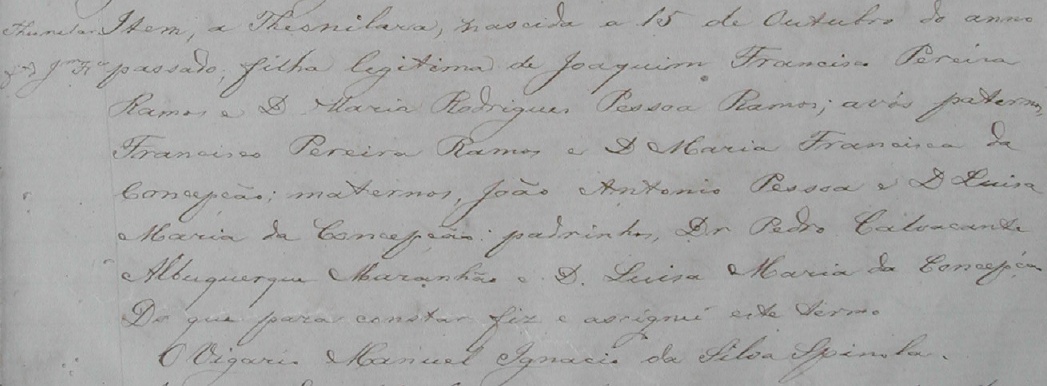 Item, a Thesnilara, nascida a 15 de Outubro do anno
passado, filha legitima de Joaquim Francisco Pereira
Ramos e D Maria Rodrigues Pessoa Ramos; avós paternos,
Francisco Pereira Ramos e D Maria Francisca da
Concepção; maternos, João Antonio Pessoa e D Luisa
Maria da Concepção: padrinhos, Dr Pedro Cavalcante
Albuquerque Maranhão e D. Luisa Maria da Concepção
Do que para constar fiz e assignei este termo
O Vigario Manuel Ignacio da Silva Spinola.